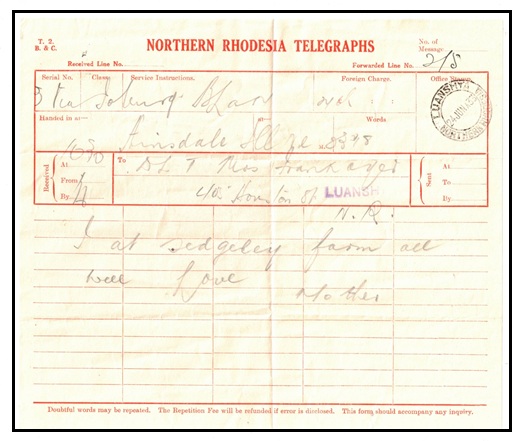 T. 2.
B. & C.
NORTHERN RHODESIA TELEGRAPHS
No. of
Message
2/8
Received Line No.
Forwarded Line No.
Serial No. Class. Service Instructions. Foreign Charge. Office Stamp.
LUANSHYA
NORTHERN
Handed in at at Words
Hinsdale Ill
Received
At
From
By
To
DLT Mrs Frank
c/o Houston
LUANSH
N. R.
Sent
At
To
By
I at Sedgeley farm all
well Love
Mother
Doubtful words may be repeated. The Repetition Fee will be refunded if error is disclosed. This form should accompany any inquiry.